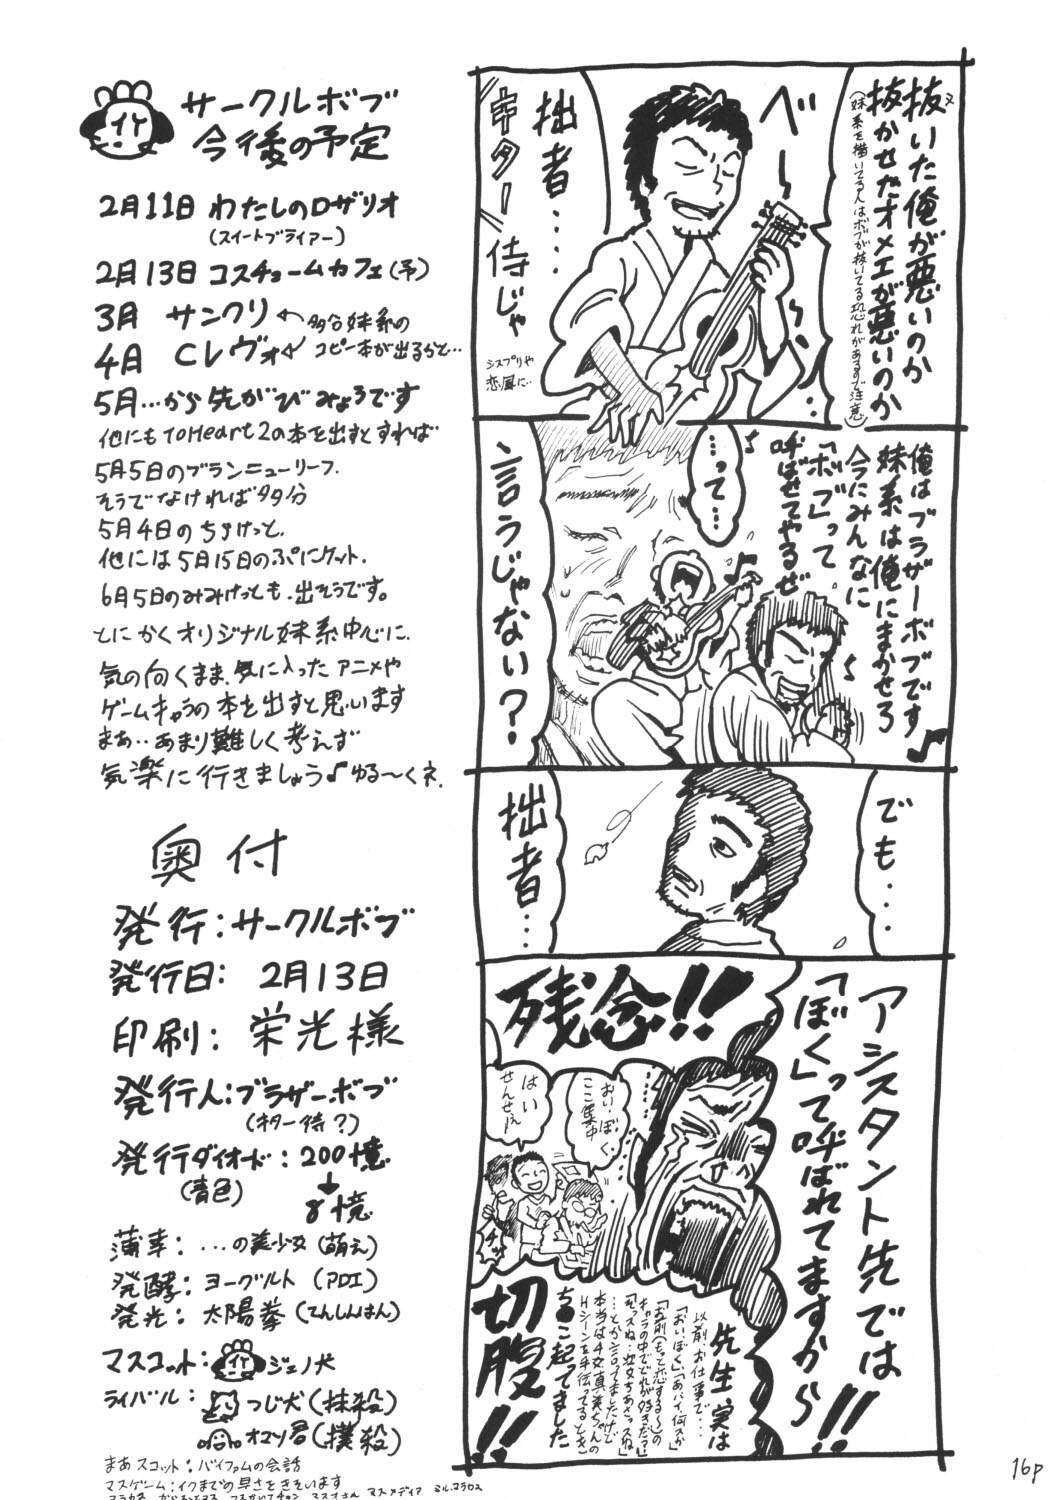 サークルボブ
今後の予定
2月11日 わたしのロザリオ
(スイートブライアー)
2月13日 コスチュームカフェ(予)
3月 サンクリ
4月 Cレヴォ
←多分妹系の
コピー本が出るらと…
5月…から先がびみょうです
他にもToHeart2の本を出すとすれば
5月5日のブランニューリーフ.
そうでなければ多分
5月4日のちょけっと.
他には5月15日のぷにケット.
6月5日のみみけっとも.出そうです。
とにかくオリジナル妹系中心に.
気の向くまま.気に入ったアニメや
ゲームキャラの本を出すと思います
まあ‥あまり難しく考えず
気楽に行きましょう♪ゆる〜くネ.
奥付
発行:サークルボブ
発行日: 2月13日
印刷: 栄光様
発行人:ブラザーボブ
(ギター侍?)
発行ダイオード:200億
(青色)
↓
8億
薄幸:…の美少女(萌え)
発酵:ヨーグルト(PDI)
発光:太陽拳(てんしんはん)
マスコット: ジェノ犬
ライバル: つじ犬(抹殺)
オマソ君(撲殺)
まあスコット:バイファムの会話
マスゲーム:イクまでの早さをきそいます
抜いた俺が悪いのか
ヌ
抜かせたオメエが悪いのか
(妹系を描いてる人はボブが抜いてる恐れがあるので注意)
べ〜〜ン‥
拙者‥‥
ギター侍じゃ
シスプリや
恋風に‥
俺はブラザーボブです♪
妹系は俺にまかせろ
今にみんなに
「ボブ」って
呼ばせてやるぜ
♪
…って…
言うじゃない?
でも‥‥
拙者…
アシスタント先では
「ぼく」って呼ばれてますから!!
残念!!
おい、ぼく、
ここ集中
はい
せんせぇ
切腹!!
先生、実は
以前、お仕事で…
「おい、ぼく」「あ、ハイ、何スか」
キャラの中でどれが好きだっ?」
…とか言ってましたけど
本当は4女、真美ちゃんの
Hシーンを手伝ってるとき
ち●こ起ってました
16p